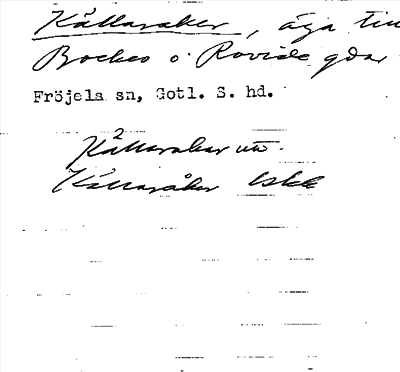 Källaråker, äga till
Bockes o. Rovide gdar
Fröjela sn, Gotl. S. hd.
Källarakar utt.
Källaråker